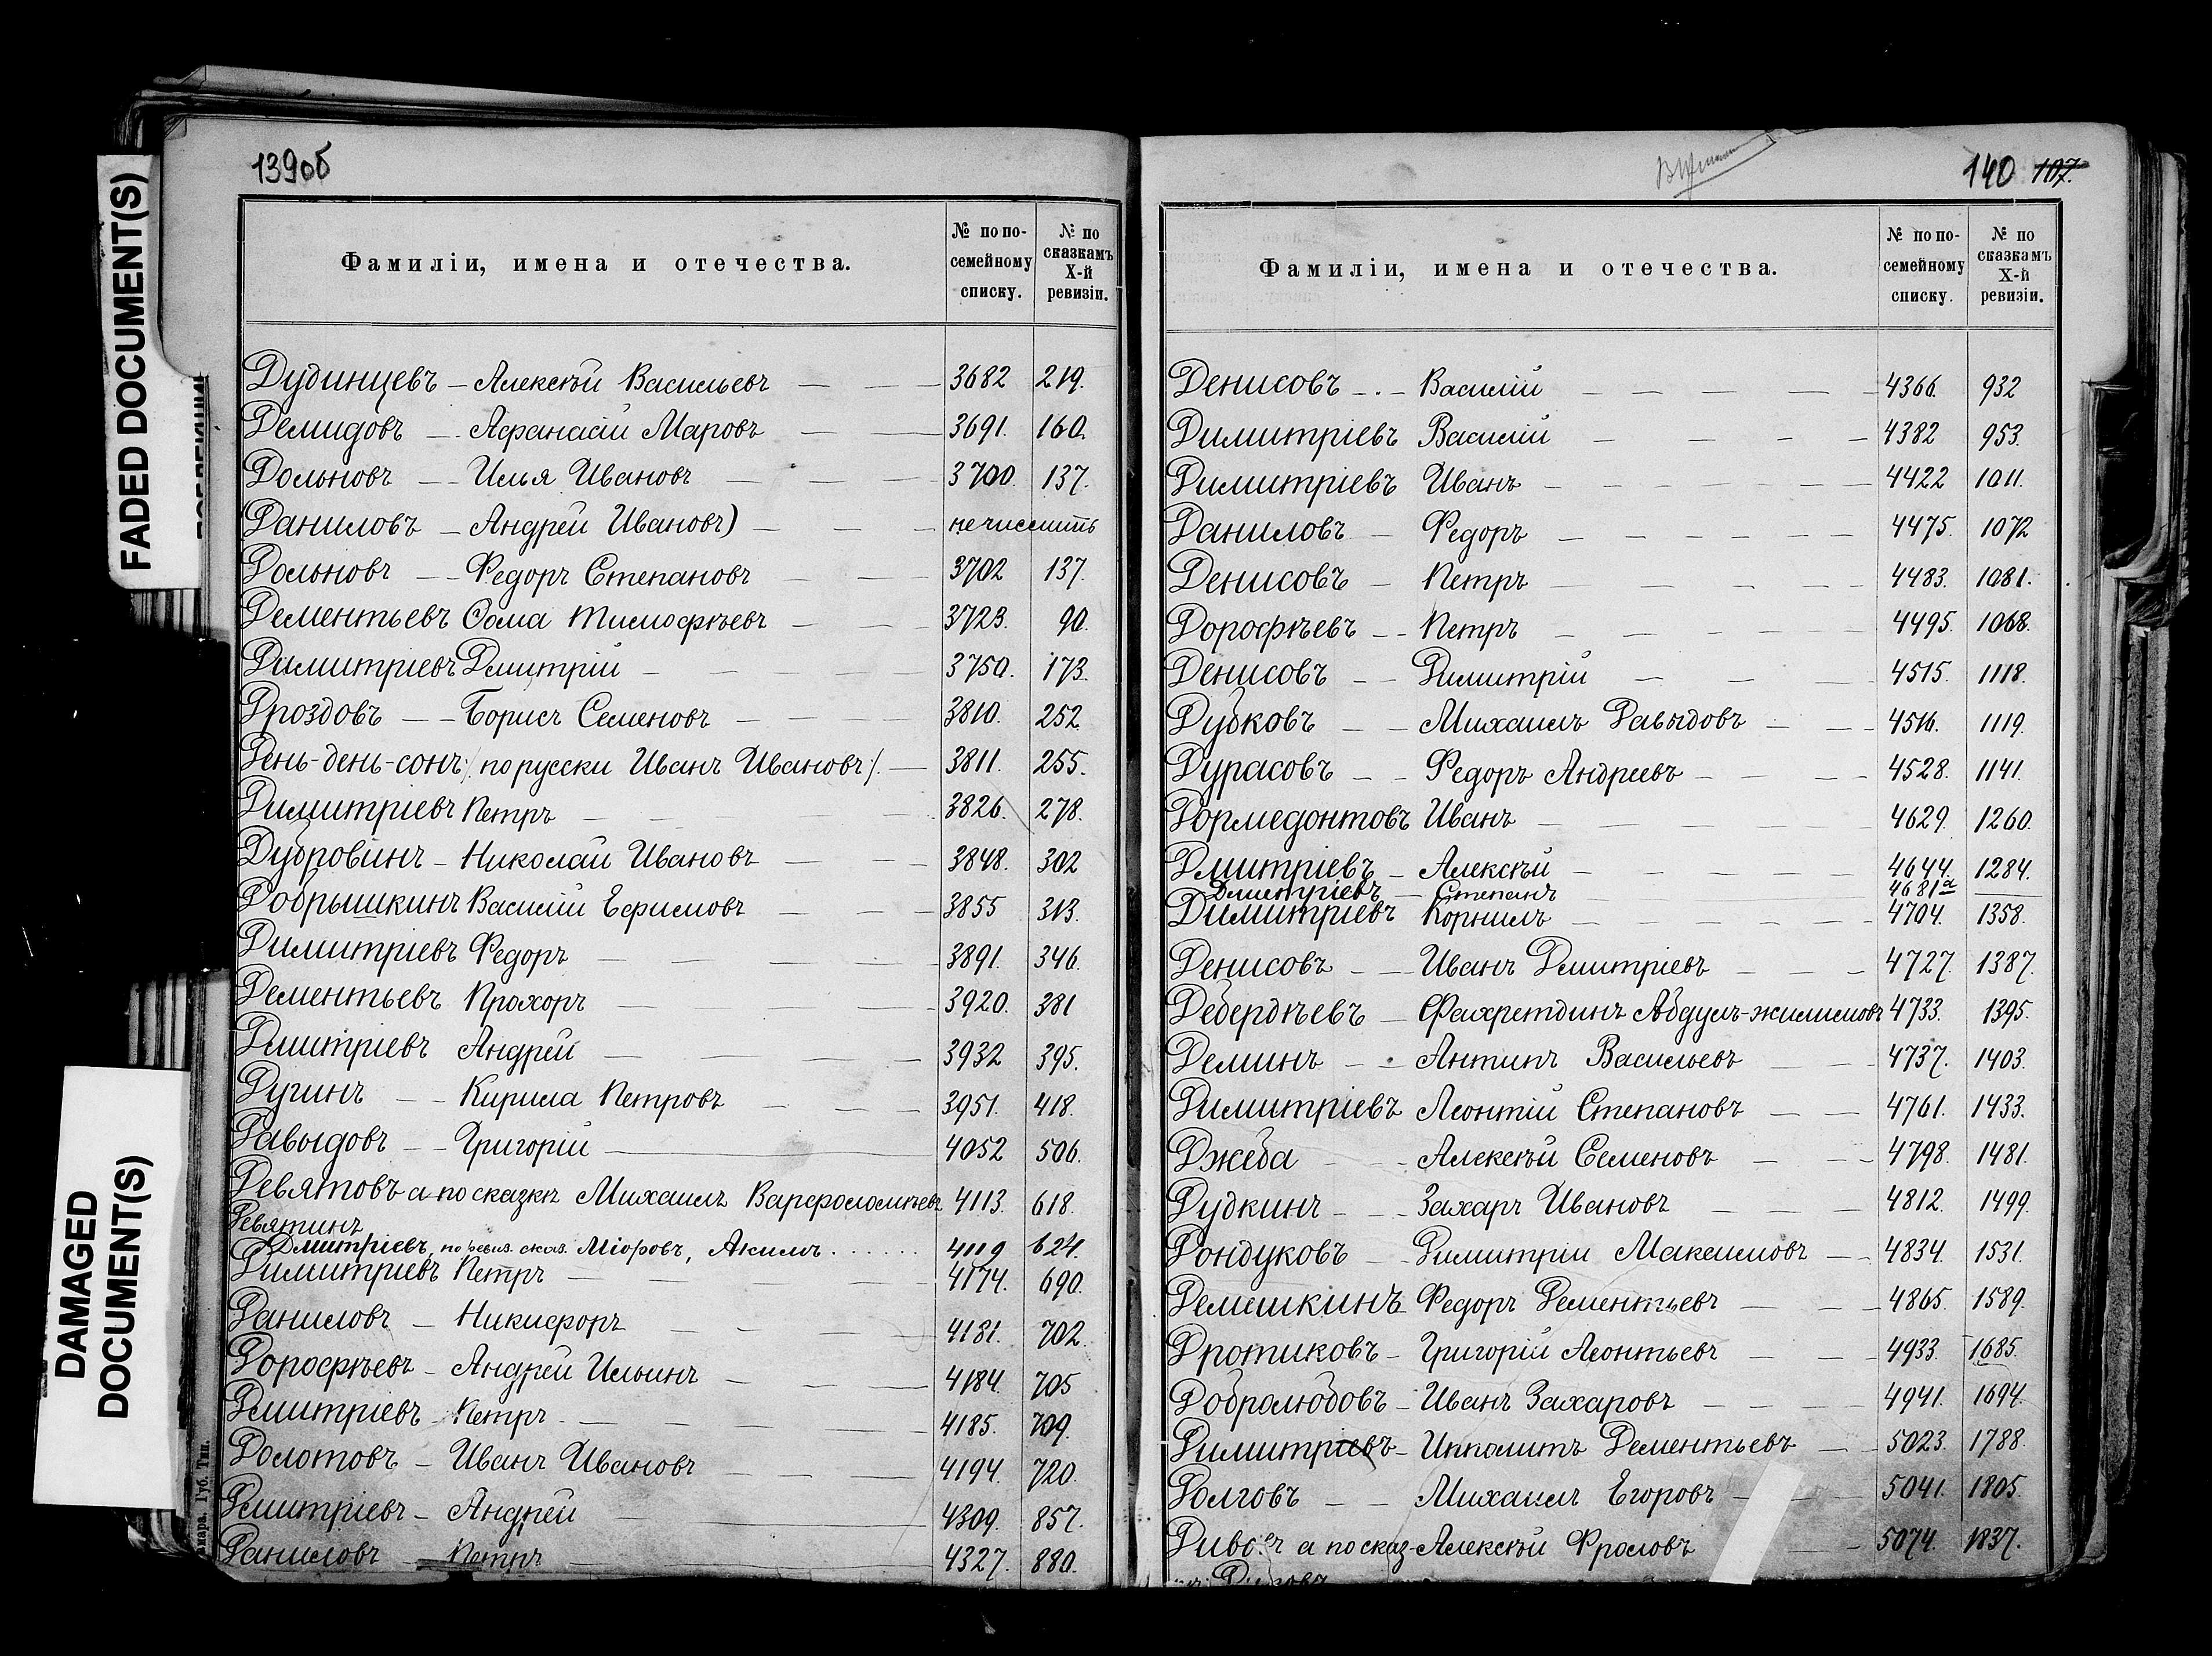 FADED DOCUMENT(S)
DAMAGED
DOCUMENT(S)
139об
Фамиліи, имена и отечества.
№ по по-
семейному
списку.
№ по
сказкамъ
X-й
ревизіи.
Дудинцевъ — Алексѣй Васильевъ — — — 3682 219.
Демидовъ — Афанасій Маровъ — — 3691. 160.
Дольновъ — — Илья Ивановъ — — — 3700. 137.
Даниловъ — Андрей Ивановъ) — — — не числить
Дольновъ — — Федоръ Степановъ — — — 3702 137.
Дементьевъ Ѳома Тимофѣевъ — — — 3723. 90.
Димитріевъ Дмитрій — — — — — 3750. 173.
Дроздовъ — — Борисъ Семеновъ — — — — 3810. 252.
День-день-сонъ /. по русски Иванъ Ивановъ /. — 3811. 255.
Димитріевъ Петръ — — — 3826. 278.
Дубровинъ — Николай Ивановъ — — — 3848. 302
Добрышкинъ Василій Ефимовъ — — — 3855 313.
Димитріевъ Федоръ — — — — 3891. 346.
Дементьевъ Прохоръ — — — — 3920. 381
Дмитріевъ Андрей — — — — 3932 395.
Дугинъ — — Кирила Петровъ — — — 3951. 418.
Давыдовъ — — Григорій — 4052 506.
Девятовъ а по сказкѣ Михаилъ Варфоломѣевъ 4113. 618.
Девятинъ
Дмитріевъ, по ревиз. сказ. Міоровъ, Акимъ . . . . . . 4119 624.
Димитріевъ Петръ — — — — 4174. 690.
Даниловъ — Никифоръ — — — 4181. 702.
Дорофѣевъ — Андрей Ильинъ — — — 4184. 705
Дмитріевъ — Петръ — — — — 4185. 709.
Долотовъ — Иванъ Ивановъ — — — 4194. 720.
Дмитріевъ — Андрей — — 4309. 857.
Даниловъ — Петръ — 4327. 880.
140 107.
Фамиліи, имена и отечества.
№ по по-
семейному
списку.
№ по
сказкамъ
X-й
ревизіи.
Денисовъ — . — Василій — — — — — 4366. 932
Димитріевъ Василій — — — — 4382 953.
Димитріевъ Иванъ — — — — — — 4422 1011.
Даниловъ — Федоръ — — — — — — 4475. 1072
Денисовъ — Петръ — — — — — 4483. 1081.
Дорофѣевъ — — Петръ — — — — — 4495. 1068.
Денисовъ — — Димитрій — — — 4515. 1118.
Дубковъ — — Михаилъ Давыдовъ — — — 4516. 1119.
Дурасовъ — — Федоръ Андреевъ — — — — 4528. 1141.
Дормедонтовъ Иванъ — — — — — 4629. 1260.
Дмитріевъ — Алексѣй — — — — — 4644. 1284.
Дмитріевъ — Степанъ — 4681а —
Димитріевъ Корнилъ — — — — — 4704. 1358.
Денисовъ — — Иванъ Дмитріевъ — — — 4727. 1387.
Дебердѣевъ — Фахретдинъ Абдулъ-жилиловъ 4733. 1395.
Деминъ — — Антипъ Васильевъ — — — 4737. 1403.
Димитріевъ Леонтій Степановъ — — 4761. 1433.
Джеба — — Алексѣй Семеновъ — — 4798. 1481.
Дудкинъ — — Захаръ Ивановъ — — — 4812. 1499.
Дондуковъ — Димитрій Максимовъ — — 4834. 1531.
Демешкинъ Федоръ Дементьевъ — — — 4865. 1589.
Дротиковъ — Григорій Леонтьевъ — — — 4933. 1685.
Добролюбовъ — Иванъ Захаровъ — — — — 4941. 1694.
Димитріевъ — Ипполитъ Дементьевъ — — 5023. 1788.
Долговъ — — Михаилъ Егоровъ — — — 5041. 1805.
а по сказ- Алексѣй Фроловъ — — 5074. 1837.